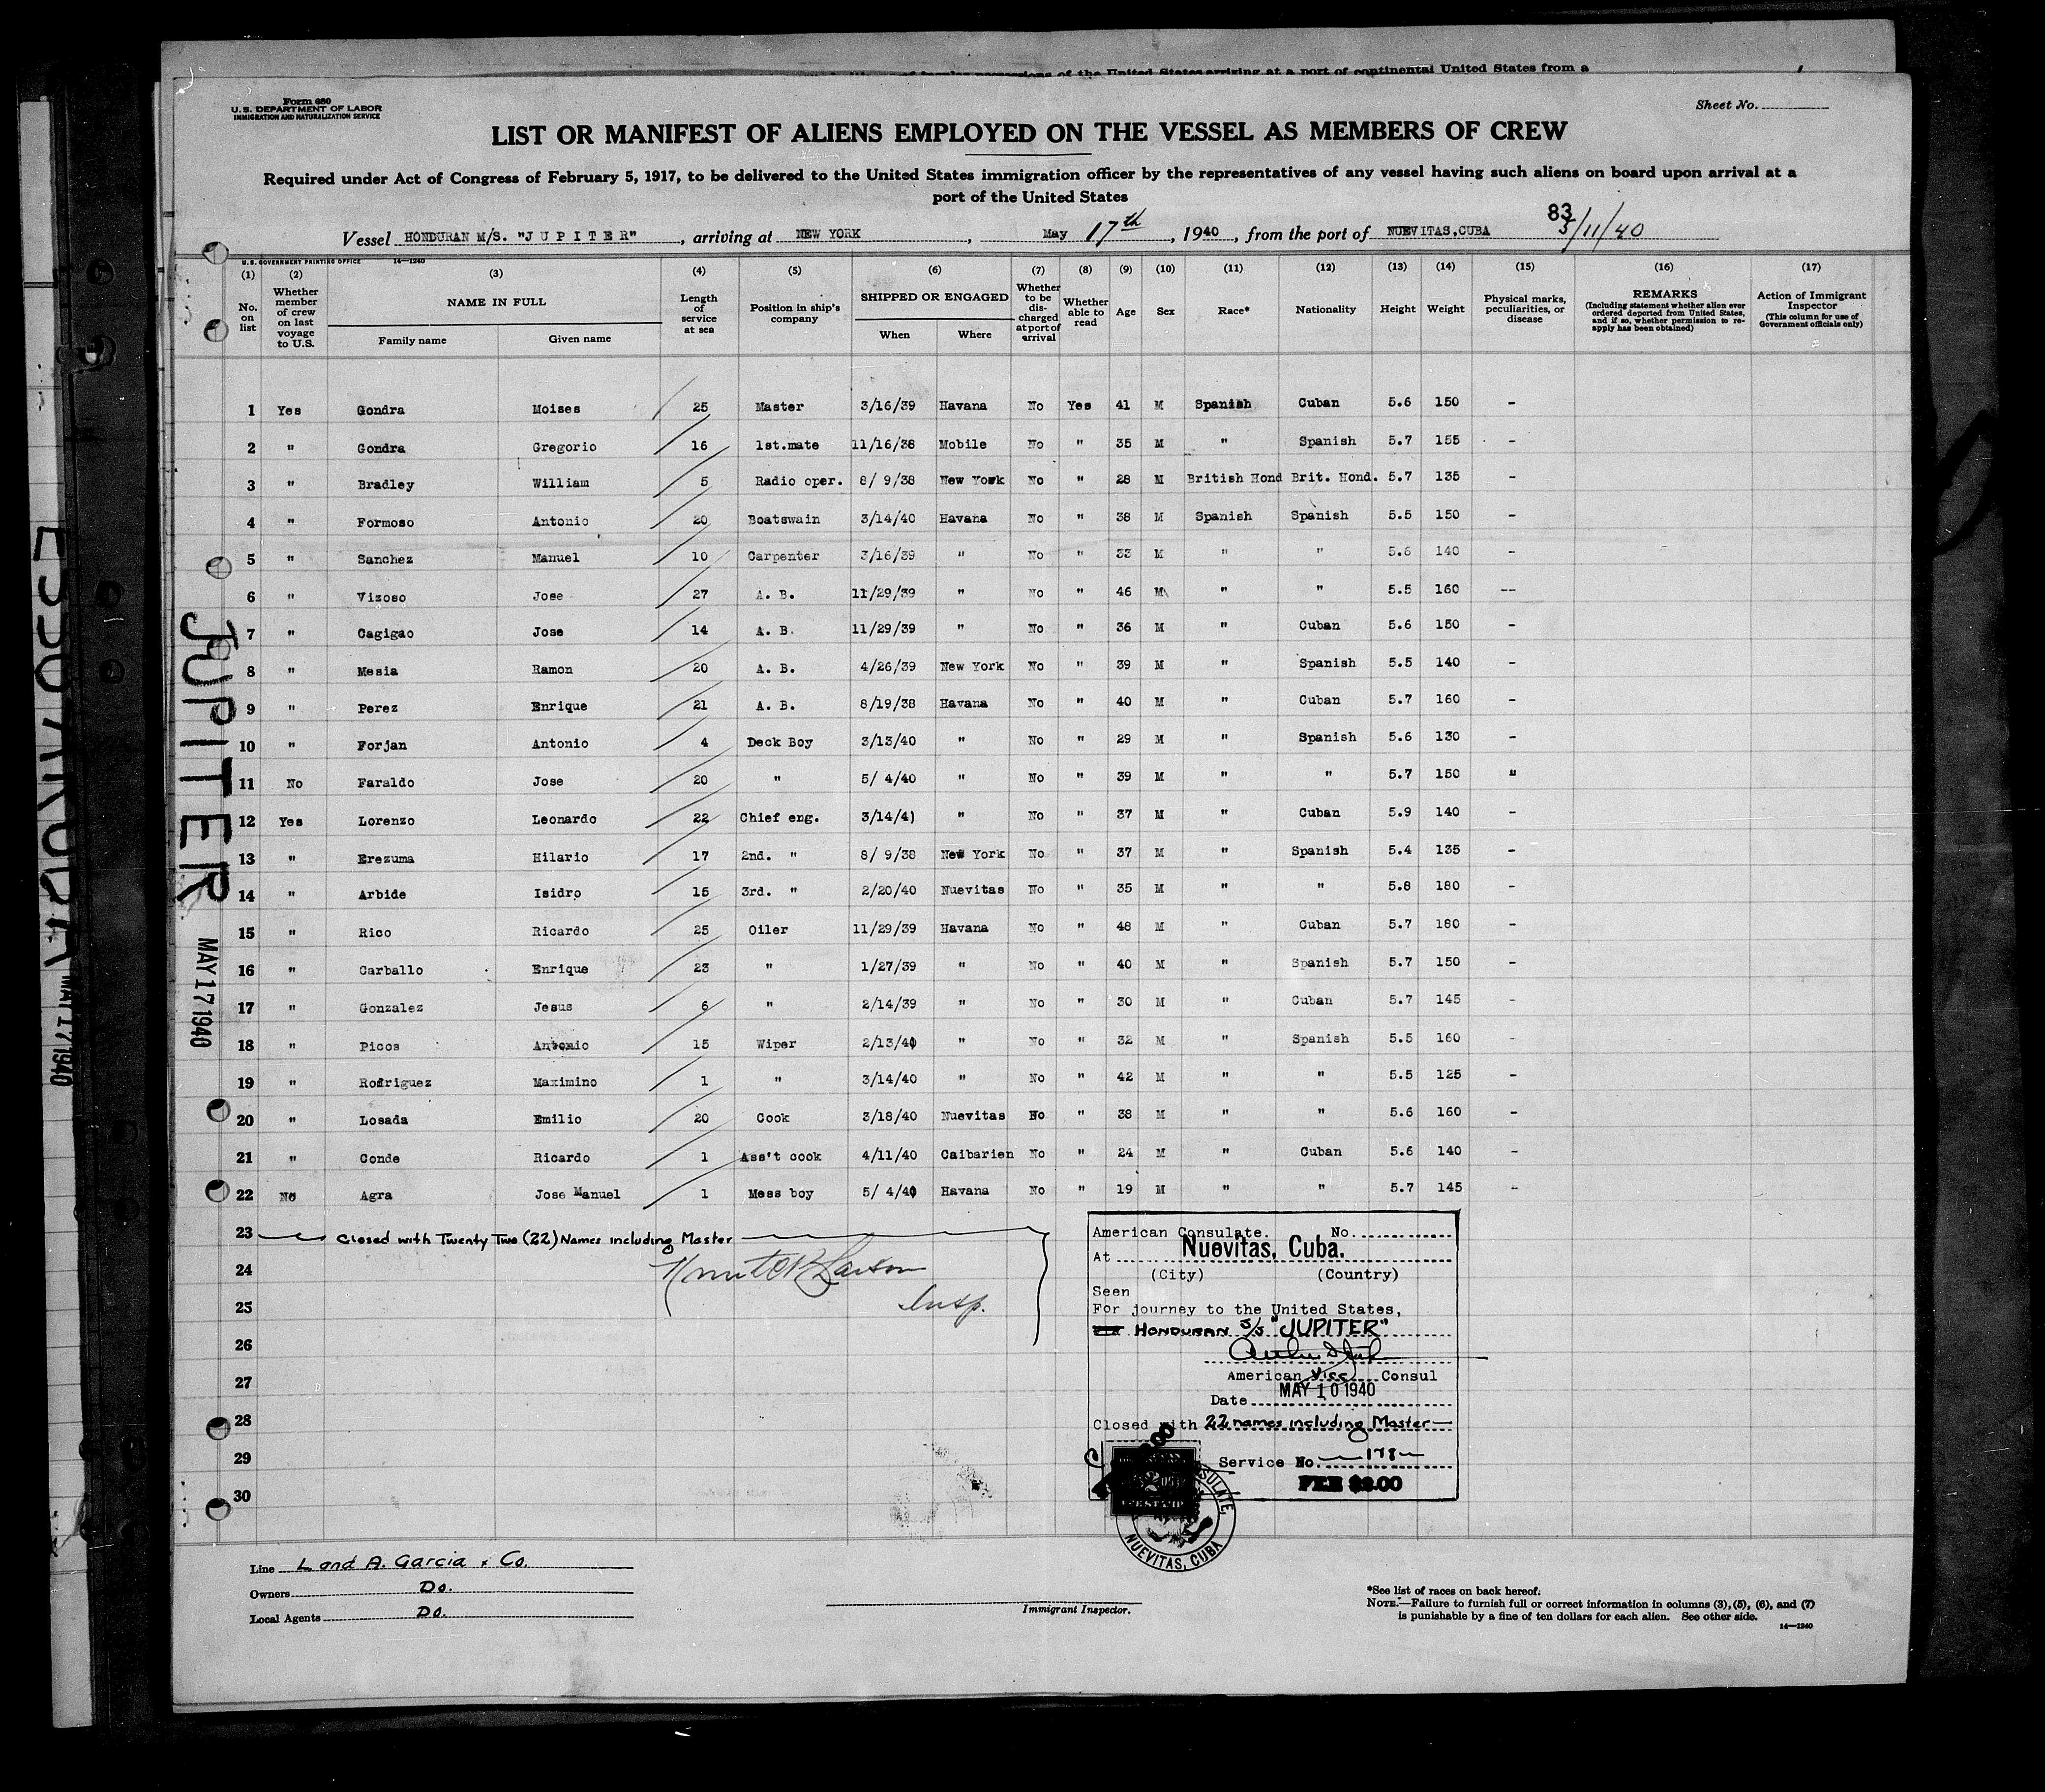 of foreign possessions of the United States arriving at a port of continental United States from a
Form 680
U. S. DEPARTMENT OF LABOR
IMMIGRATION AND NATURALIZATION SERVICE
Sheet No.
LIST OR MANIFEST OF ALIENS EMPLOYED ON THE VESSEL AS MEMBERS OF CREW
Required under Act of Congress of February 5, 1917, to be delivered to the United States immigration officer by the representatives of any vessel having such aliens on board upon arrival at a
port of the United States
83
Vessel HONDURAN M/S. "J U P I T E R", arriving at NEW YORK, May 17th, 1940, from the port of NUEVITAS,CUBA 5/11/40
U. S. GOVERNMENT PRINTING OFFICE 14—1240
(1) (2) (3) (4) (5) (6) (7) (8) (9) (10) (11) (12) (13) (14) (15) (16) (17)
No. on list
Whether member of crew on last voyage to U.S.
NAME IN FULL
Family name
Given name
Length of service at sea
Position in ship's company
SHIPPED OR ENGAGED
When
Where
Whether to be discharged at port of arrival
Whether able to read
Age
Sex
Race*
Nationality
Height
Weight
Physical marks, peculiarities, or disease
REMARKS
(Including statement whether alien ever ordered deported from United States, and if so, whether permission to reapply has been obtained)
Action of Immigrant Inspector
(This column for use of Government officials only)
1 Yes Gondra Moises 25 Master 3/16/39 Havana No Yes 41 M Spanish Cuban 5.6 150 -
2 " Gondra Gregorio 16 1st.mate 11/16/38 Mobile No " 35 M " Spanish 5.7 155 -
3 " Bradley William 5 Radio oper. 8/ 9/38 New York No " 28 M British Hond Brit. Hond. 5.7 135 -
4 " Formoso Antonio 20 Boatswain 3/14/40 Havana No " 38 M Spanish Spanish 5.5 150 -
5 " Sanchez Manuel 10 Carpenter 3/16/39 " No " 33 M " " 5.6 140 -
6 " Vizoso Jose 27 A. B. 11/29/39 " No " 46 M " " 5.5 160 --
7 " Cagigao Jose 14 A. B. 11/29/39 " No " 36 M " Cuban 5.6 150 -
8 " Mesia Ramon 20 A. B. 4/26/39 New York No " 39 M " Spanish 5.5 140 -
9 " Perez Enrique 21 A. B. 8/19/38 Havana No " 40 M " Cuban 5.7 160 -
10 " Forjan Antonio 4 Deck Boy 3/13/40 " No " 29 M " Spanish 5.6 130 -
11 No Faraldo Jose 20 " 5/ 4/40 " No " 39 M " " 5.7 150 "
12 Yes Lorenzo Leonardo 22 Chief eng. 3/14/4) " No " 37 M " Cuban 5.9 140 -
13 " Erezuma Hilario 17 2nd. " 8/ 9/38 New York No " 37 M " Spanish 5.4 135 -
14 " Arbide Isidro 15 3rd. " 2/20/40 Nuevitas No " 35 M " " 5.8 180 -
15 " Rico Ricardo 25 Oiler 11/29/39 Havana No " 48 M " Cuban 5.7 180 -
16 " Carballo Enrique 23 " 1/27/39 " No " 40 M " Spanish 5.7 150 -
17 " Gonzalez Jesus 6 " 2/14/39 " No " 30 M " Cuban 5.7 145 -
18 " Picos Antonio 15 Wiper 2/13/40 " No " 32 M " Spanish 5.5 160 -
19 " Rodriguez Maximino 1 " 3/14/40 " No " 42 M " " 5.5 125 -
20 " Losada Emilio 20 Cook 3/18/40 Nuevitas No " 38 M " " 5.6 160 -
21 " Conde Ricardo 1 Ass't cook 4/11/40 Caibarien No " 24 M " Cuban 5.6 140 -
22 No Agra Jose Manuel 1 Mess boy 5/ 4/40 Havana No " 19 M " " 5.7 145 -
23 Closed with Twenty Two (22) Names including Master
24
25 Insp.
26
27
28
29
30
American Consulate. No.
At Nuevitas, Cuba.
(City) (Country)
Seen
For journey to the United States,
HONDURAN S/S "JUPITER"
American Vice Consul
Date MAY 10 1940
Closed with 22 names including Master
Service No. 178
FEE $2.00
CONSULATE, NUEVITAS, CUBA
Line L and A. Garcia & Co.
Owners Do.
Local Agents Do.
Immigrant Inspector.
*See list of races on back hereof.
NOTE.—Failure to furnish full or correct information in columns (3), (5), (6), and (7)
is punishable by a fine of ten dollars for each alien. See other side.
14—1240
JUPITER
MAY 17 1940
MAY 17 1940